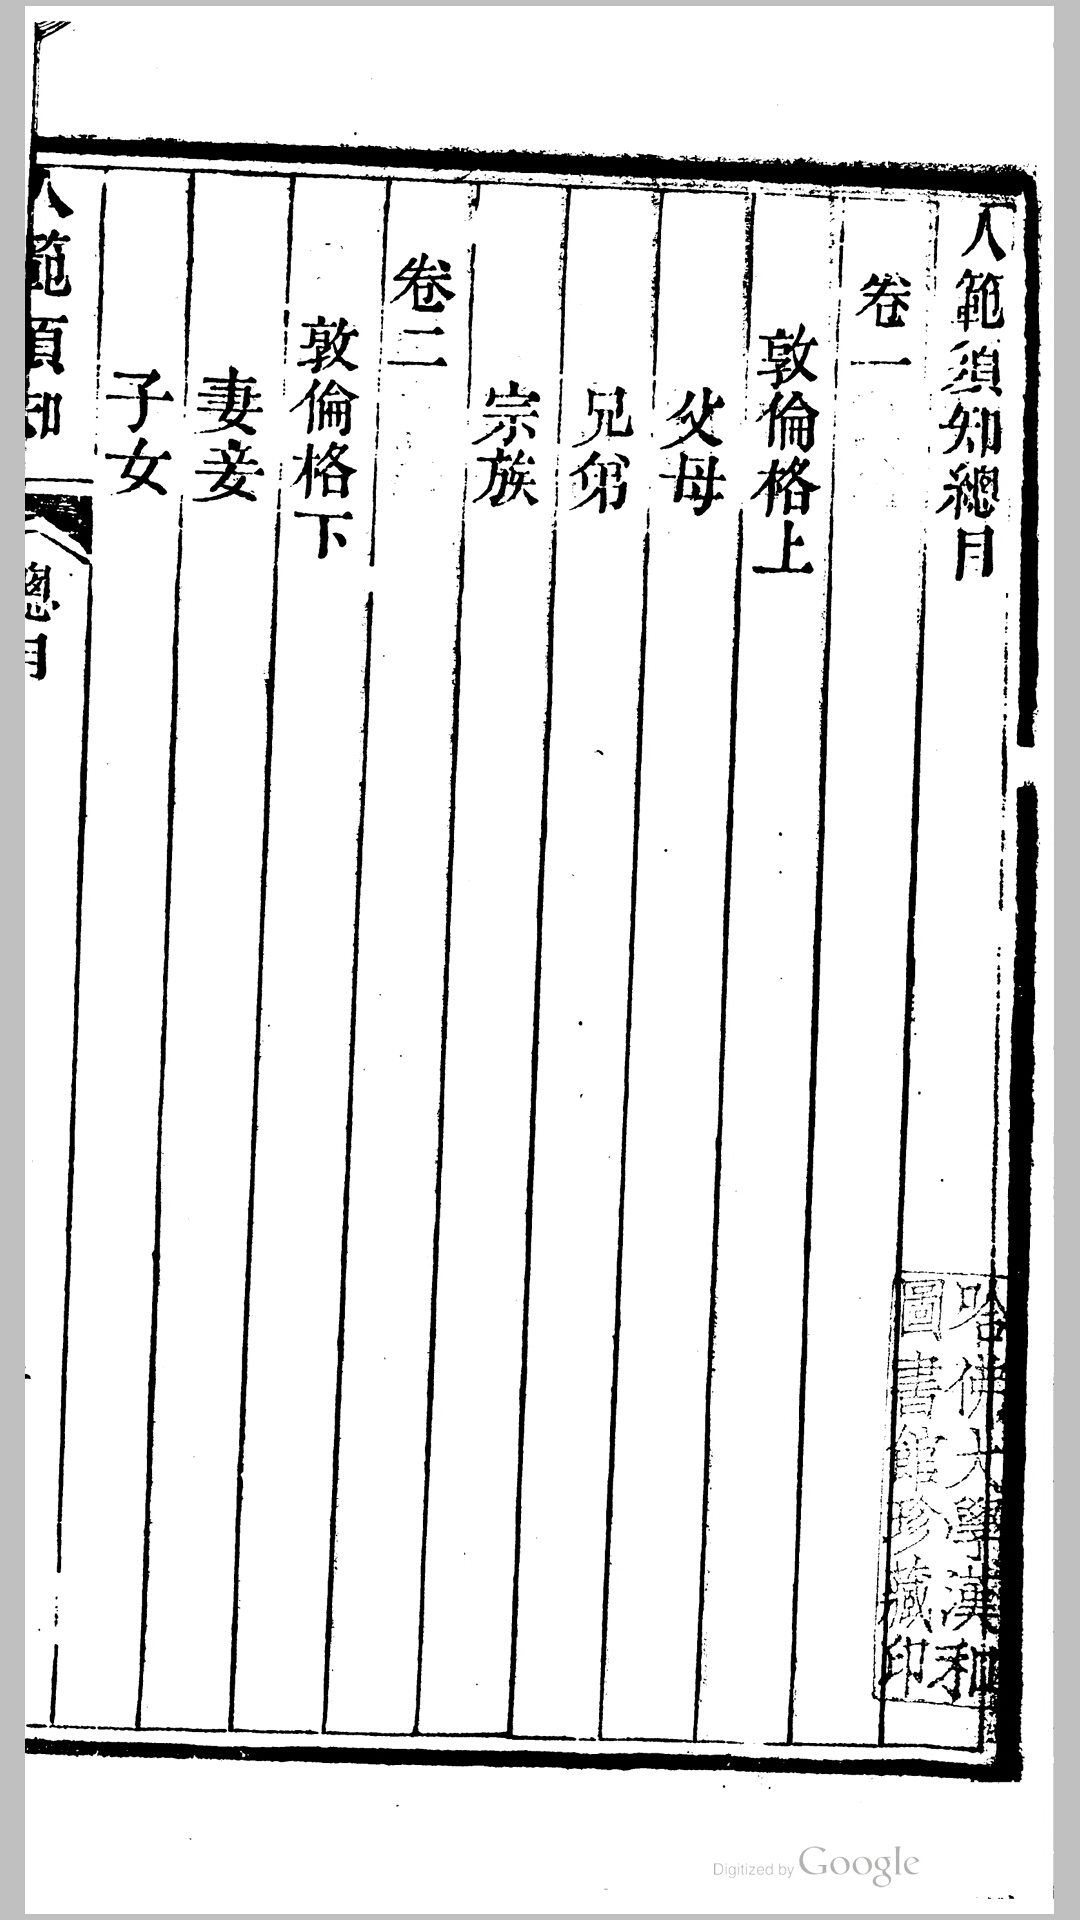 人範須知總目
卷一
敦倫格上
父母
兄弟
宗族
卷二
敦倫格下
妻妾
子女
人範須知
總目
哈佛大學漢和
圖書館珍藏印
Digitized by Google